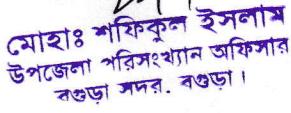 মোহাঃ শফিকুল ইসলাম
উপজেলা পরিসংখ্যান অফিসার
বগুড়া সদর, বগুড়া।